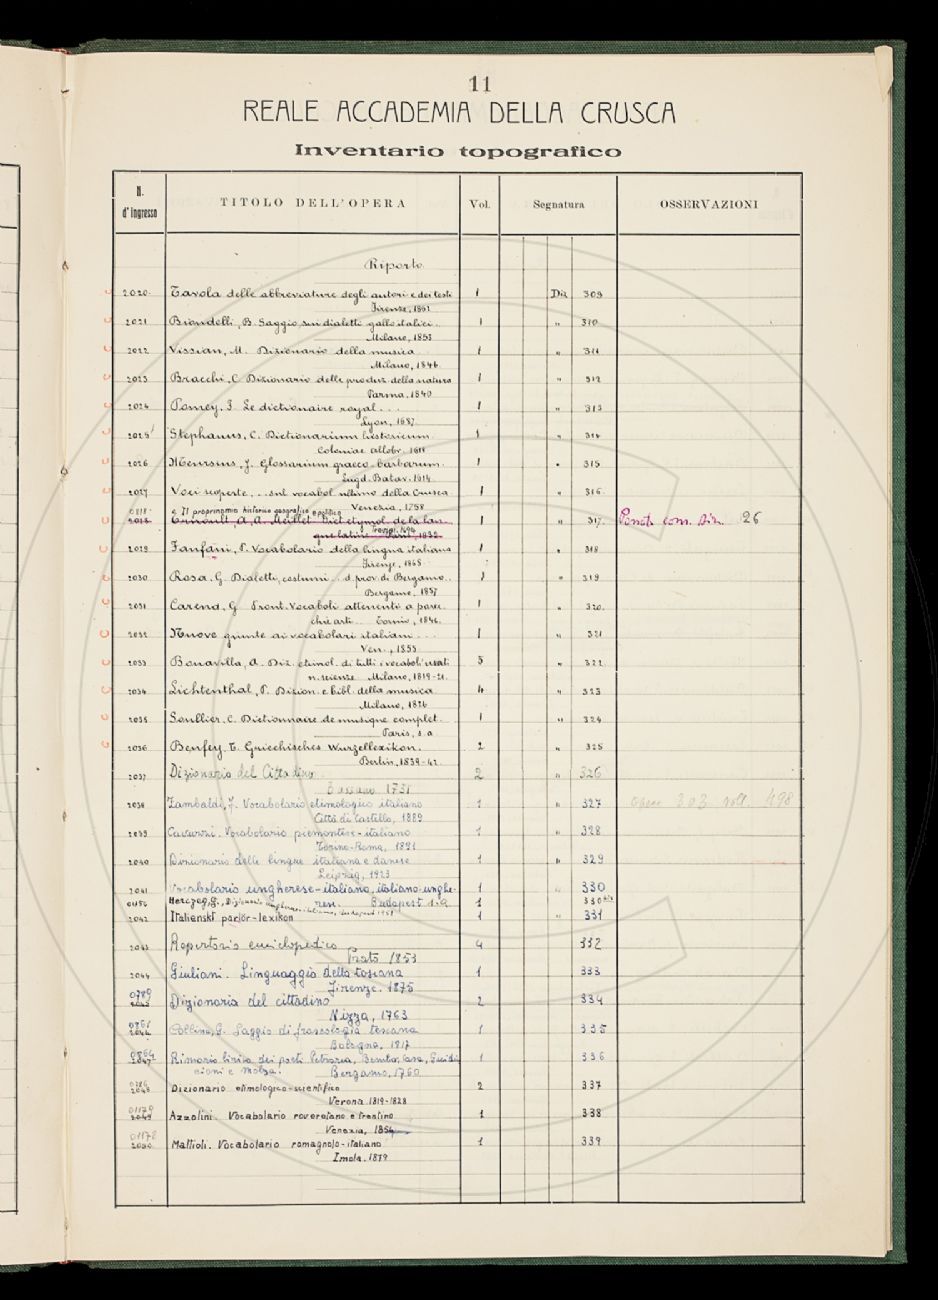 11
REALE ACCADEMIA DELLA CRUSCA
Inventario topografico
N. d'Ingresso TITOLO DELL'OPERA Vol. Segnatura OSSERVAZIONI
Riporto
2020 Tavola delle abbreviature degli autori e dei testi 1 Diz 309
Firenze, 1862
2021 Biondelli, B. Saggio sui dialetti gallo italici.. 1 " 310
Milano, 1853
2022 Vissian, M. Dizionario della musica 1 " 311
Milano, 1846.
2023 Bracchi, C Dizionario delle produz. della natura 1 " 312
Parma, 1840
2024 Pomey. F. Le dictionaire royal... 1 " 313
Lyon, 1687
2025 Stephanus, C. Dictionarium historicum. 1 " 314
Coloniae Allobr. 1611
2026 Meursius, J. Glossarium graeco-barbarum. 1 " 315
Lugd. Batav. 1614
2027 Voci scoperte... sul vocabol. ultimo della Crusca 1 " 316.
Venezia, 1758
0818 e Il proprinomio historico geografico e politico
2028 Ernoult, A, A. Meillet Dict etymol. de la lan- 1 " 317. 26
gue latine Paris, 1932
2029 Fanfani, P. Vocabolario della lingua italiana 1 " 318
Firenze, 1865
2030 Rosa. G. Dialetti, costumi .. d. prov. di Bergamo.. 1 " 319
Bergamo, 1857
2031 Carena, G Pront. Vocaboli attenenti a parec 1 " 320.
chie arti... Torino, 1846.
2032 Nuove giunte ai vocabolari italiani ... 1 " 321
Ven., 1855
2033 Bonavilla, A. Diz. etimol. di tutti i vocaboli usati 5 " 322
n. scienze Milano, 1819-21.
2034 Lichtenthal, P. Dizion. e bibl. della musica 4 " 323
Milano, 1826
2035 Soullier, C. Dictionnaire de musique complet. 1 " 324
Paris, s.a
2036 Benfey, T. Griechisches Wurzellexikon. 2 " 325
Berlin, 1839-42.
2037 Dizionario del Cittadino 2 " 326
Bassano 1731
2038 Zambaldi, F. Vocabolario etimologico italiano 1 " 327 opere 303 voll. 498
Città di Castello, 1889
2039 Vocabolario piemontese-italiano 1 " 328
Torino-Roma, 1891
2040 Dizionario delle lingue italiana e danese 1 " 329
Leipzig, 1923
2041 Vocabolario ungherese-italiano, italiano-unghe- 1 " 330
rese. Budapest s.a.
01154 Herczeg, G., Dizionario ungherese-italiano, Budapest 1951 1 330 bis
2042 Italienskt parlör-lexikon 1 " 331
2043 Repertorio enciclopedico 4 332
Prato 1853
2044 Giuliani. Linguaggio della toscana 1 333
Firenze. 1875
0789
2045 Dizionario del cittadino 2 334
Nizza, 1763
0861
2046 Collina, G. Saggio di fraseologia toscana 1 335
Bologna, 1817
0864
2047 Rimario lirico dei poeti Petrarca, Bembo, Casa, Guidic 1 336
cioni e Molza. Bergamo, 1760
0786
2048 Dizionario etimologico-scientifico 2 337
Verona 1819-1828
01179
2049 Azzolini. Vocabolario roveretano e trentino 1 338
Venezia, 1856
01178
2050 Mattioli. Vocabolario romagnolo-italiano 1 339
Imola. 1879